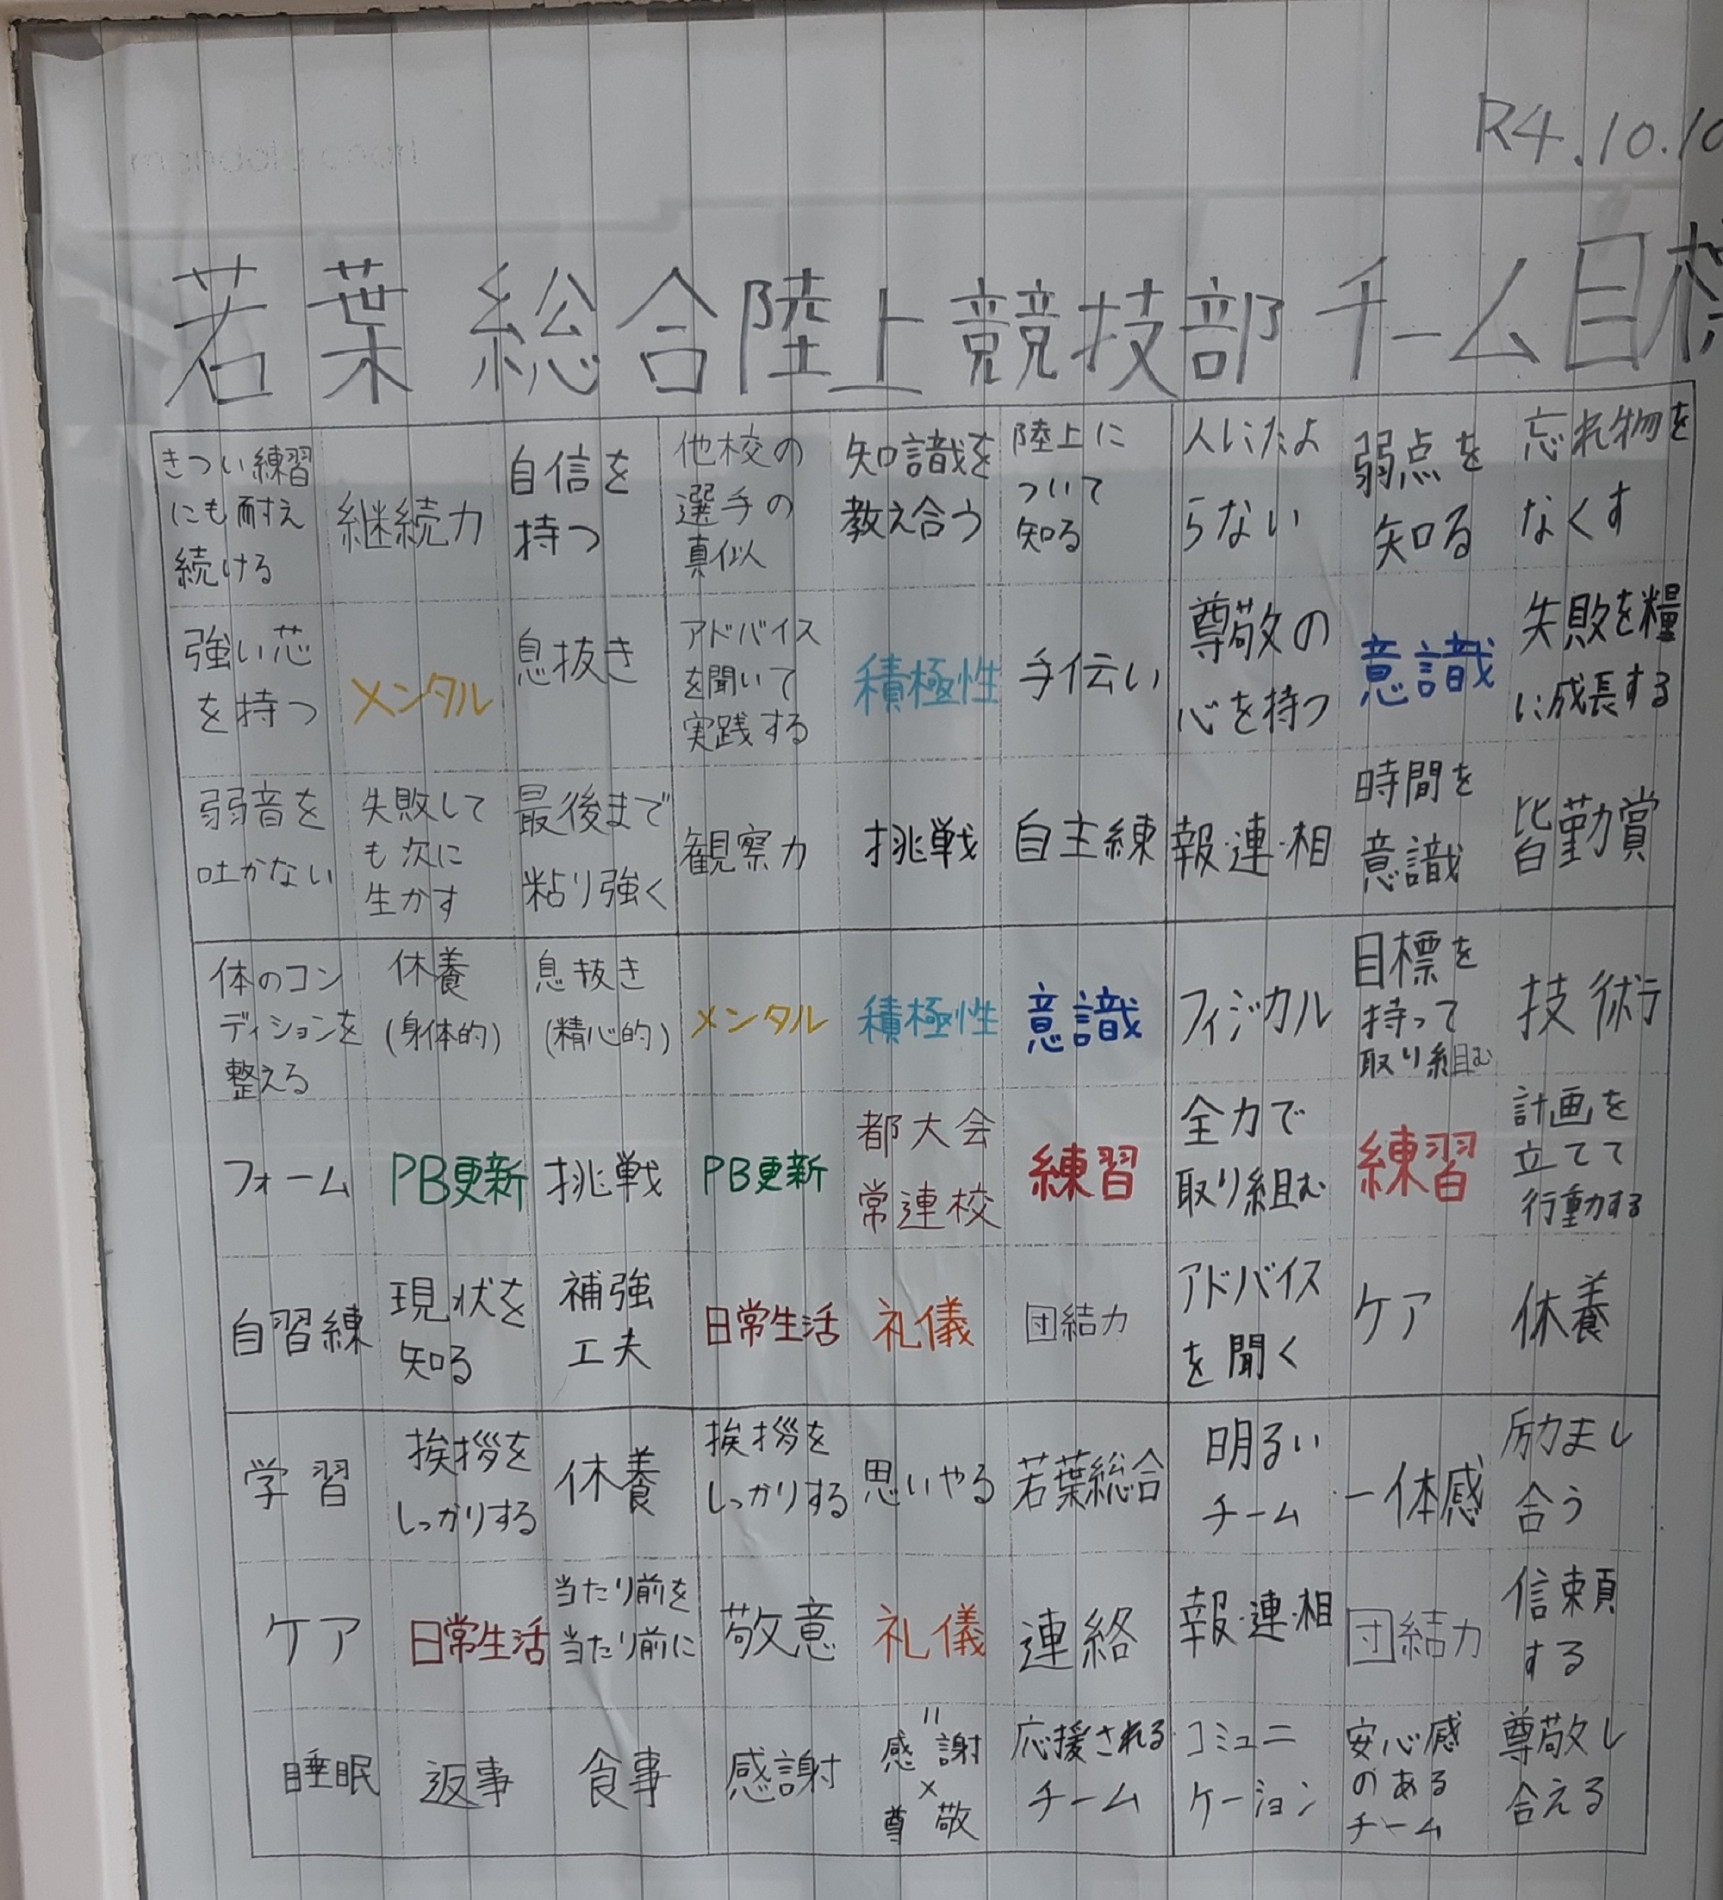 R4.10.10
若葉総合陸上競技部 チーム目標
きつい練習
にも耐え
続ける
継続力
自信を
持つ
他校の
選手の
真似
知識を
教え合う
陸上に
ついて
知る
人にたよ
らない
弱点を
知る
忘れ物を
なくす
強い芯
を持つ
メンタル
息抜き
アドバイス
を聞いて
実践する
積極性
手伝い
尊敬の
心を持つ
意識
失敗を糧
に成長する
弱音を
吐かない
失敗して
も次に
生かす
最後まで
粘り強く
観察力
挑戦
自主練
報・連・相
時間を
意識
皆勤賞
体のコン
ディションを
整える
休養
(身体的)
息抜き
(精心的)
メンタル
積極性
意識
フィジカル
目標を
持って
取り組む
技術
フォーム
PB更新
挑戦
PB更新
都大会
常連校
練習
全力で
取り組む
練習
計画を
立てて
行動する
自習練
現状を
知る
補強
工夫
日常生活
礼儀
団結力
アドバイス
を聞く
ケア
休養
学習
挨拶を
しっかりする
休養
挨拶を
しっかりする
思いやる
若葉総合
明るい
チーム
一体感
励まし
合う
ケア
日常生活
当たり前を
当たり前に
敬意
礼儀
連絡
報・連・相
団結力
信頼
する
睡眠
返事
食事
感謝
〃
感謝
×
尊敬
応援される
チーム
コミュニ
ケーション
安心感
のある
チーム
尊敬し
合える